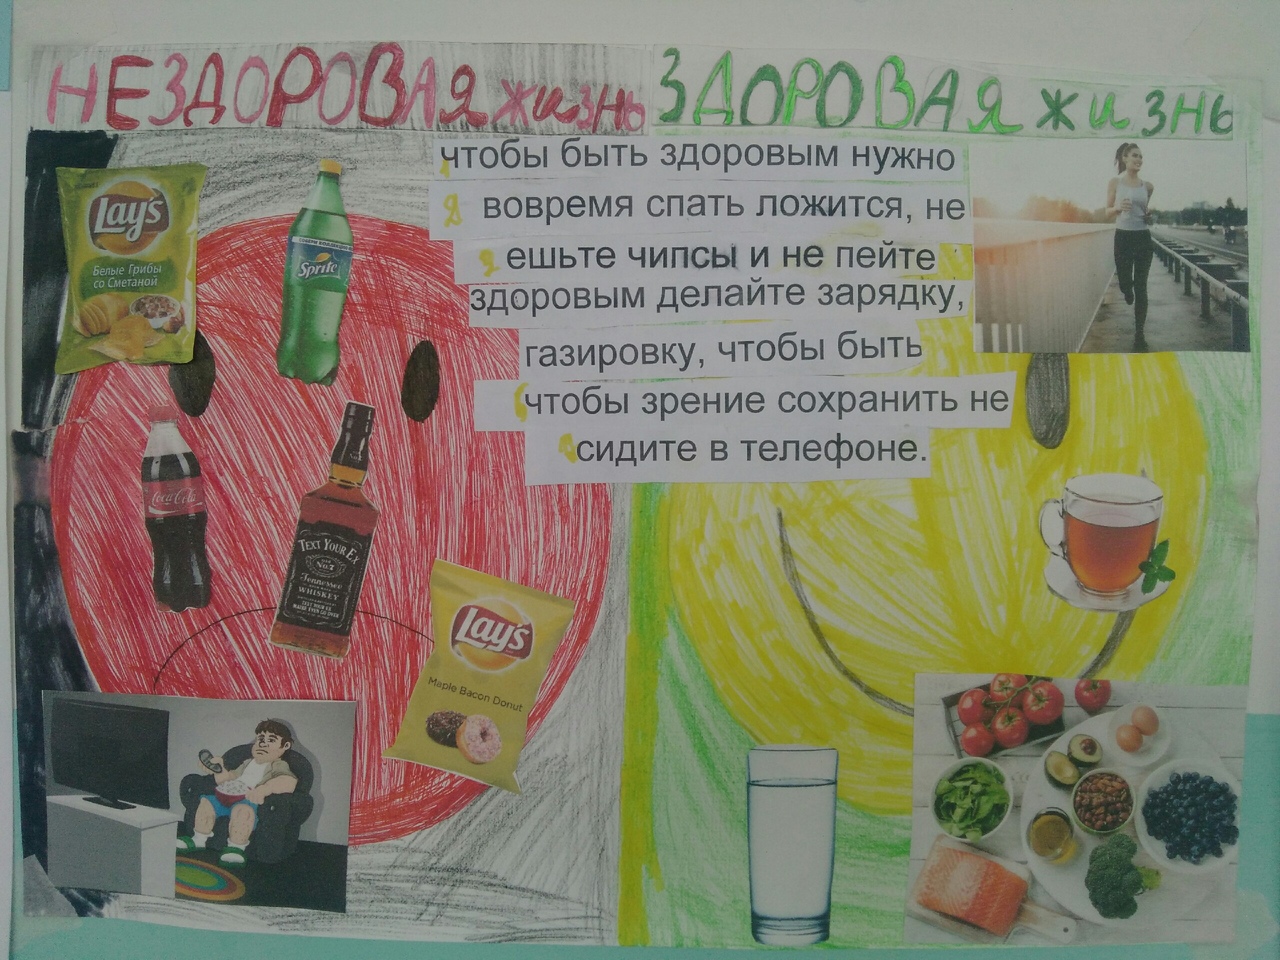 НЕЗДОРОВАЯ жизнь
ЗДОРОВАЯ жизнь
чтобы быть здоровым нужно
вовремя спать ложится, не
ешьте чипсы и не пейте
здоровым делайте зарядку,
газировку, чтобы быть
чтобы зрение сохранить не
сидите в телефоне.
Lay's
Белые Грибы
со Сметаной
Sprite
Coca-Cola
TEXT YOUR EX
No.7
Tennessee
WHISKEY
Lay's
Maple Bacon Donut